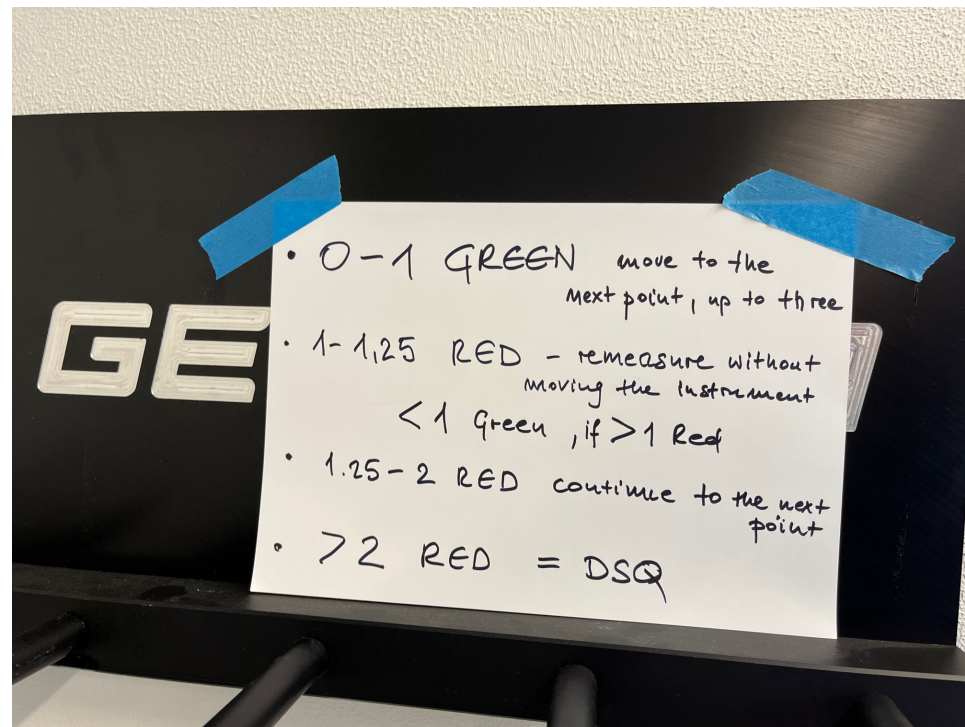 • 0-1 GREEN move to the
next point, up to three
• 1-1,25 RED - remeasure without
moving the instrument
<1 Green, if >1 Red
• 1.25-2 RED continue to the next
point
• >2 RED = DSQ
GE